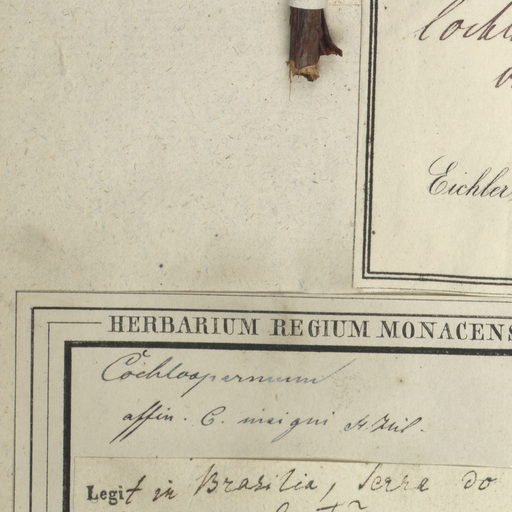 Cochl
Eichler
HERBARIUM REGIUM MONACENS
Cochlospermum
affin. C. insigni St. Hil.
Legit in Brasilia, Serra do